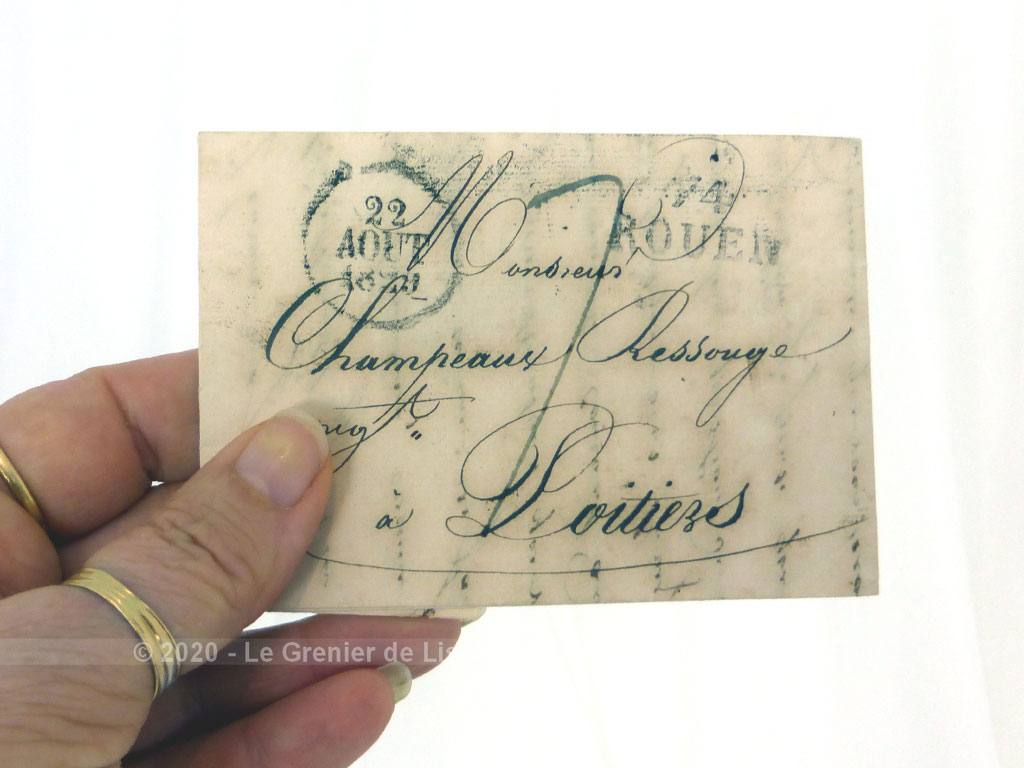 22
AOUT
74
ROUEN
Monsieur
7
Champeaux Ressouge
à Poitiers
© 2020 - Le Grenier de Lis